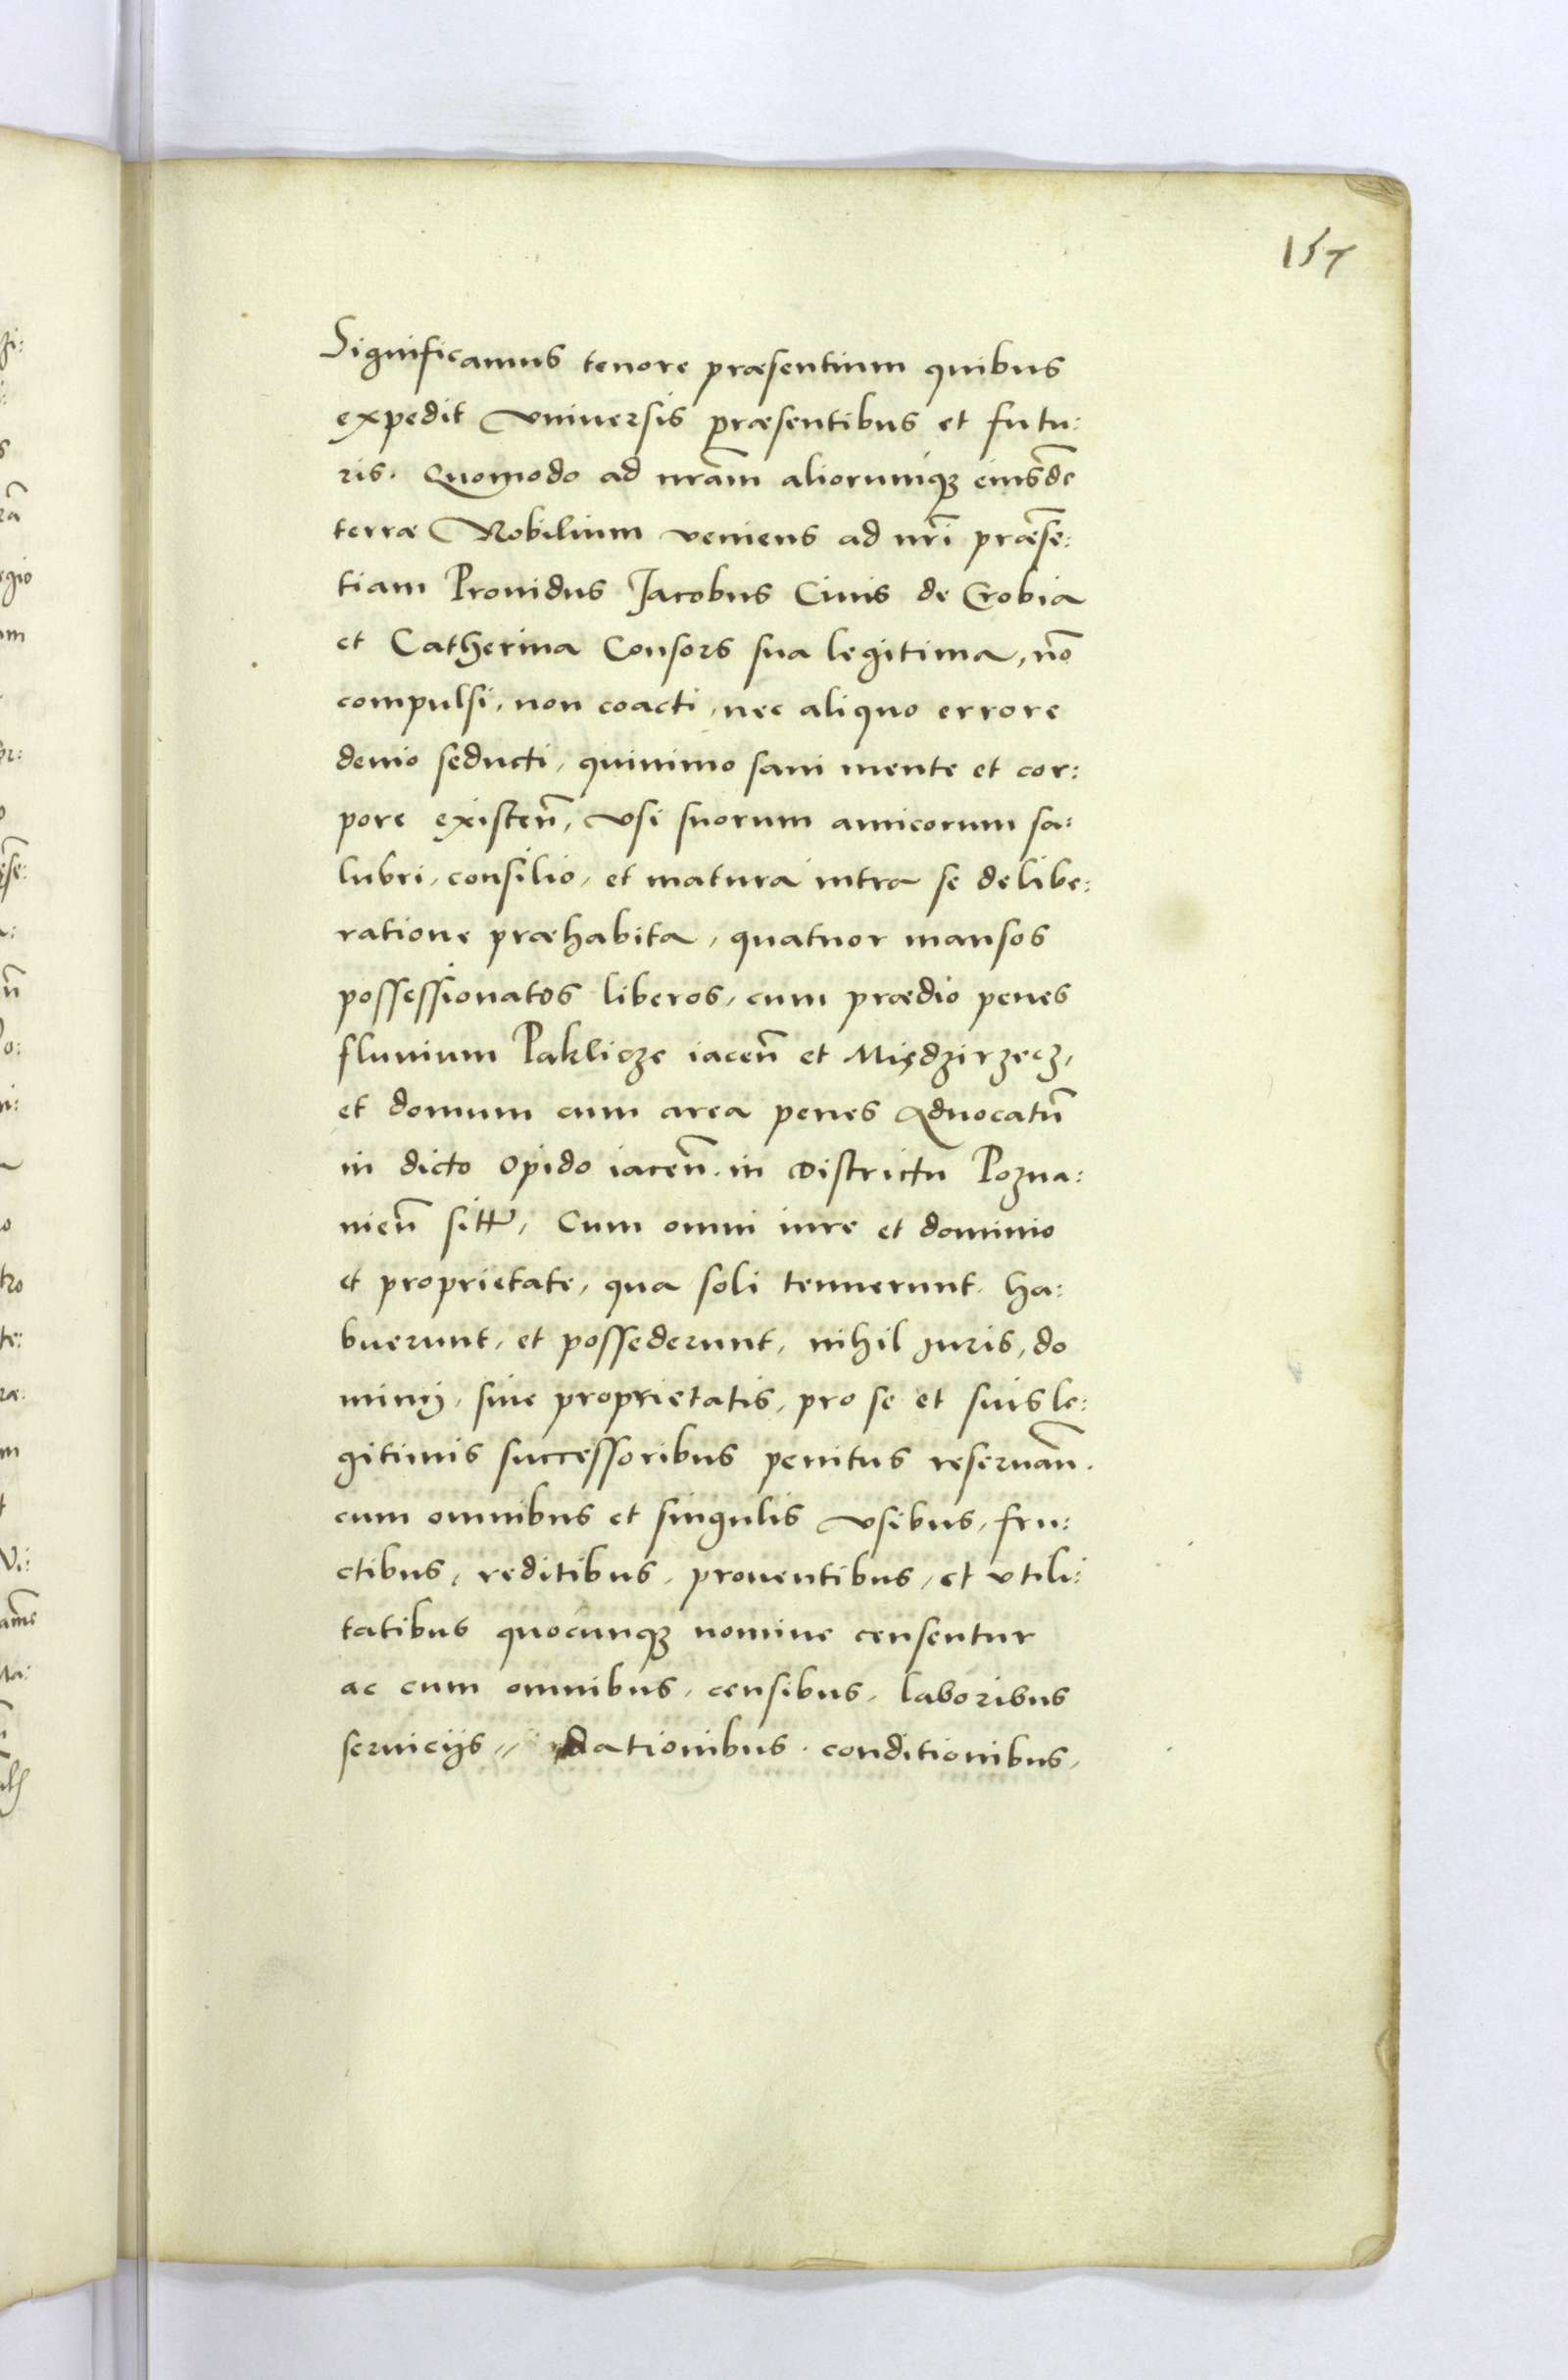 157
Significamus tenore præsentium quibus
expedit vniuersis præsentibus et futu:
ris. Quomodo ad nr̃am aliorumq̃ꝫ eiusdẽ
terræ Nobilium veniens ad nr̃i præsẽ:
tiam Prouidus Jacobus Ciuis de Crobia
et Catherina Consors sua legitima, nõ
compulsi, non coacti, nec aliquo errore
deuio seducti, quinimo sani mente et cor:
pore existeñ, vsi suorum amicorum sa:
lubri, consilio, et matura intra se delibe:
ratione præhabita, quatuor mansos
possessionatos liberos, cum prædio penes
fluuium Paklicze iaceñ et Międzirzecz,
et domum cum area penes Aduocatũ
in dicto opido iaceñ. in Districtu Pozna:
nieñ sitt̃, Cum omni iure et dominio
et proprietate, qua soli tenuerunt. ha:
buerunt, et possederunt, nihil juris, do
minij, siue proprietatis, pro se et suis le:
gitimis successoribus penitus reseruañ.
cum omnibus et singulis vsibus, fru:
ctibus, reditibus, prouentibus, et vtili:
tatibus quocunqꝫ nomine censentur
ac cum omnibus, censibus, laboribus
seruicijs, dationibus. conditionibus,